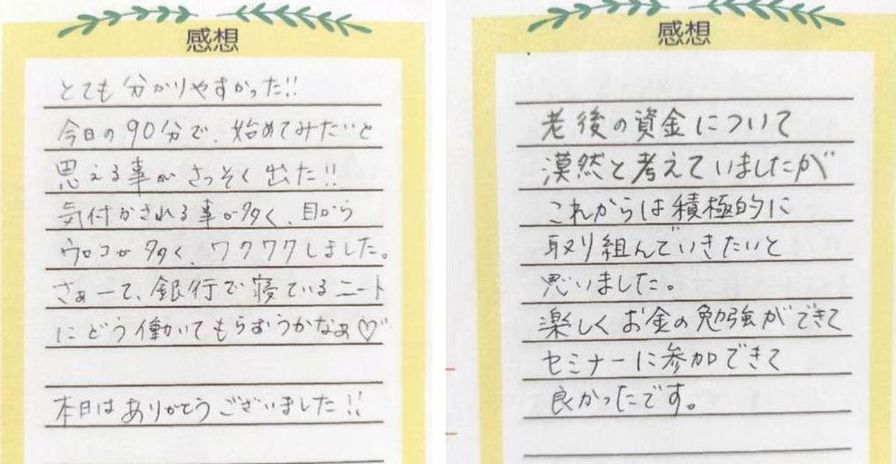 感想
とても分かりやすかった!!
今日の90分で、始めてみたいと
思える事がさっそく出た!!
気付かされる事が多く、目から
ウロコが多く、ワクワクしました。
さぁーて、銀行で寝ているニート
にどう働いてもらおうかなぁ♡
本日はありがとうございました!!
感想
老後の資金について
漠然と考えていましたが
これからは積極的に
取り組んでいきたいと
思いました。
楽しくお金の勉強ができて
セミナーに参加できて
良かったです。